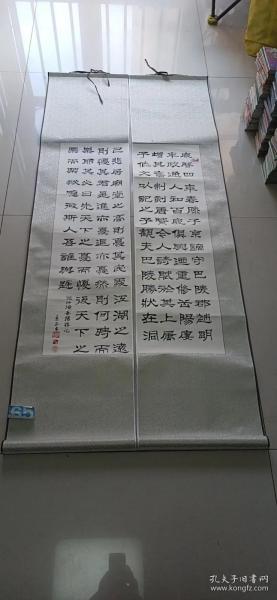 慶曆四年春滕子京謫守巴陵郡越明
年政通人和百廢具興乃重修岳陽樓
增其舊制刻唐賢今人詩賦於其上屬
予作文以記之予觀夫巴陵勝狀在洞
己悲居廟堂之高則憂其民處江湖之遠
則憂其君是進亦憂退亦憂然則何時而
樂耶其必曰先天下之憂而憂後天下之
樂而樂歟噫微斯人吾誰與歸
孔夫子旧书网